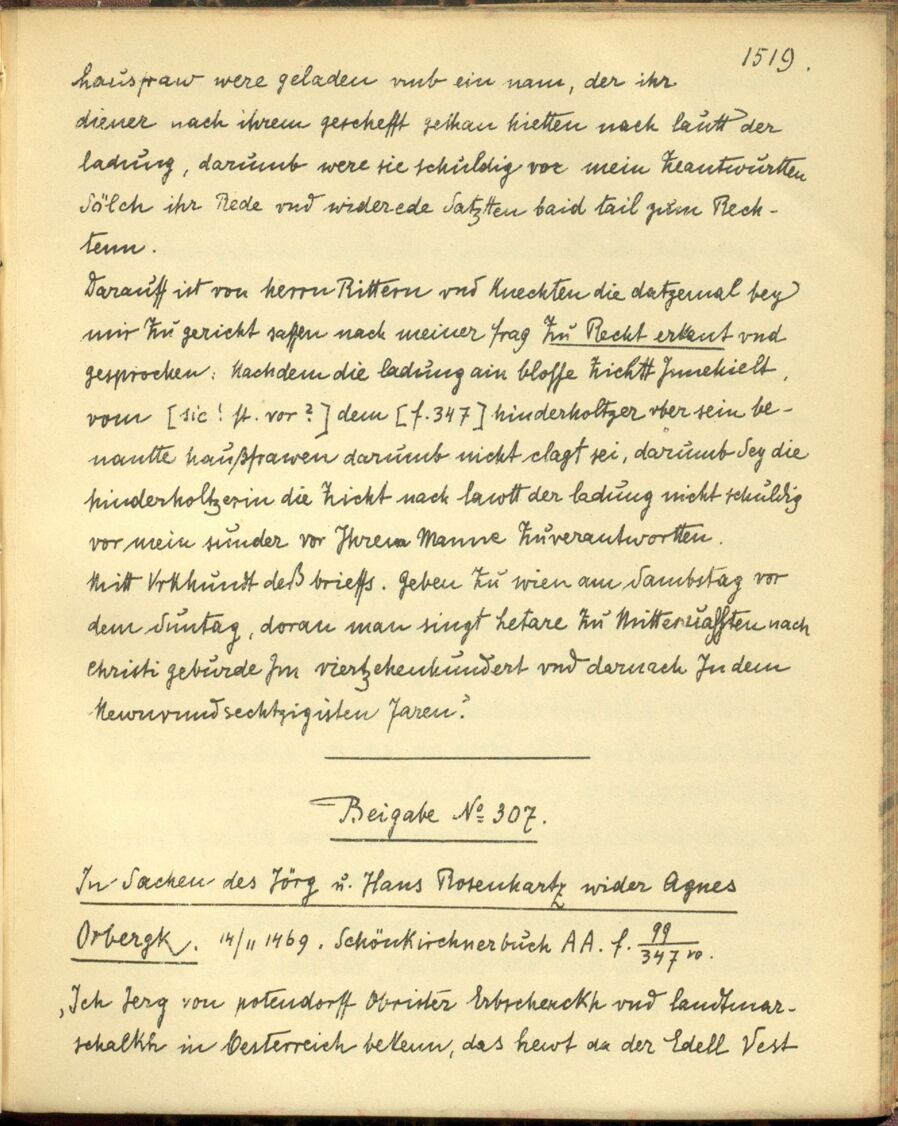 1519.
hausfraw were geladen vmb ein nam, der ihr
diener nach ihrem geschefft gethan hietten nach lautt der
ladung, darumb were sie schuldig vor mein Zeantwürtten
Sölch ihr Rede vnd widerede Satztten baid tail zum Rech-
tenn.
Darauff ist von herrn Rittern vnd Knechten die datzemal bey
mir Zu gericht sassen nach meiner frag Zu Recht erkant vnd
gesprochen: Nachdem die ladung ain blosse Zichtt Jnnehielt,
vom [sic! st. vor?] dem [f. 347] hinderholtzer vber sein be-
nantte haußfrawen darumb nicht clagt sei, darumb Sey die
hinderholtzerin die Zicht nach lawtt der ladung nicht schuldig
vor mein sunder vor Jhrem Manne Zuverantwortten.
Mitt Vrkhundt deß brieffs. Geben Zu wien am Sambstag vor
dem Suntag, doran man singt Letare Zu Mitteruassten nach
Christi geburde Jm viertzehenhundert vnd darnach Jn dem
Newnvndsechtzigisten Jaren."
Beigabe No 307.
In Sachen des Jörg u. Hans Rosenhartz wider Agnes
Orbergk. 14/11 1469. Schönkirchnerbuch AA. f. 99/347 vo.
„Ich Jerg von potendorff Obrister Erbschenckh vnd landtmar-
schalkh in Oesterreich bekenn, das hewt da der Edell Vest